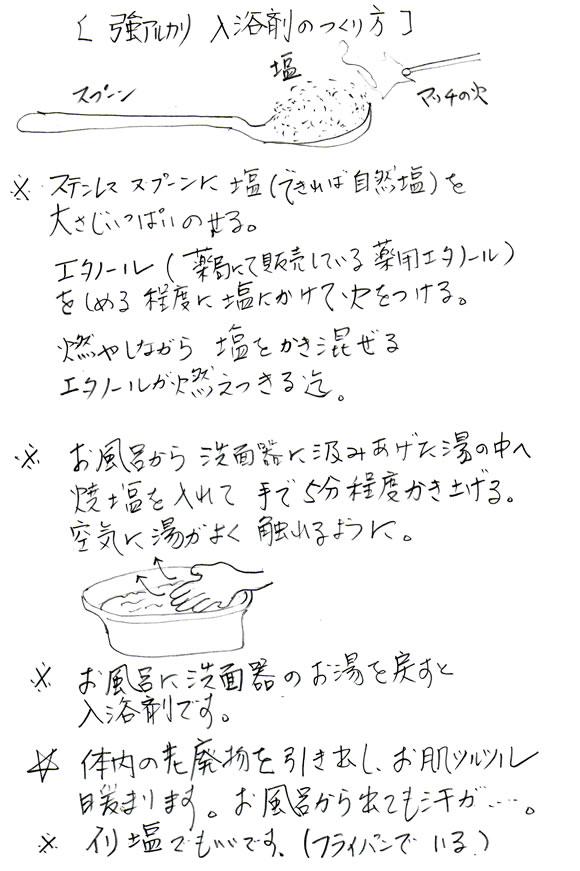 [ 強アルカリ 入浴剤のつくり方 ]
塩
スプーン
マッチの火
※ ステンレス スプーンに 塩 (できれば自然塩) を
大さじいっぱいのせる。
エタノール ( 薬局にて販売している 薬用エタノール )
をしめる 程度に 塩にかけて 火をつける。
燃やしながら 塩を かき混ぜる
エタノールが燃えつきる迄。
※ お風呂から 洗面器に汲みあげた湯の中へ
焼塩を入れて 手で5分程度かき上げる。
空気に湯がよく 触れるように。
※ お風呂に洗面器のお湯を戻すと
入浴剤です。
☆ 体内の老廃物を引き出し、お肌ツルツル
暖まります。お風呂から出ても汗が…。
※ イリ塩でもいいです。(フライパンで いる。)